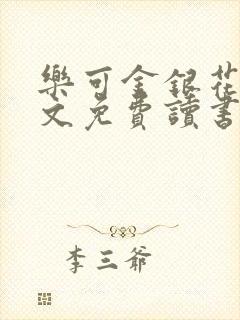 樂可金銀花
文免費讀書
李三爺